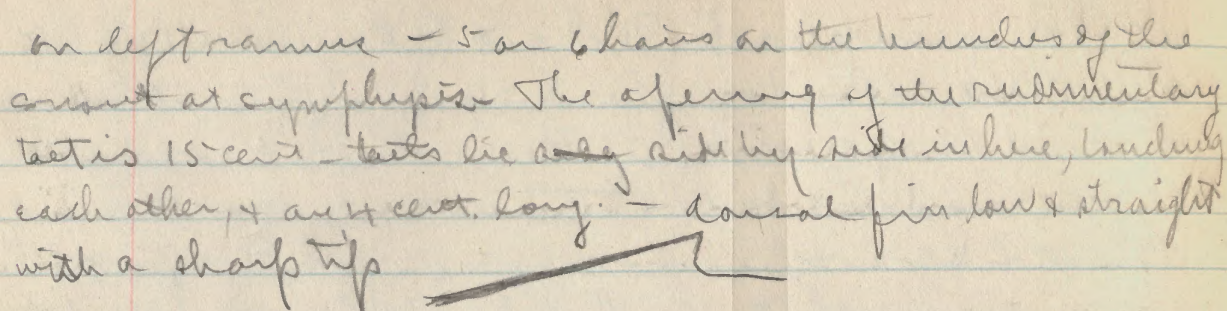 on left ramus – 5 or 6 hairs on the of the
snout at symphysis – The opening of the rudimentary
teet is 15 cent – teets lie side by side in here, touching
each other, + are 4 cent. long. – dorsal fin low + straight
with a sharp tip